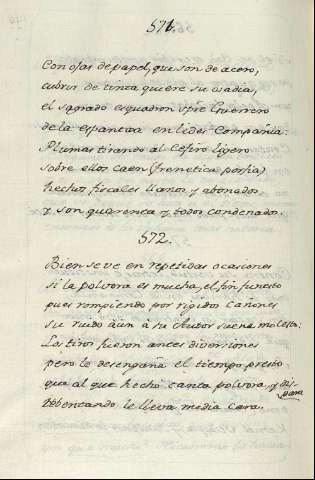 571.
Con ojas de papel, que son de acero,
cubrir de tinea quiere su wadia,
el sagrado esquadron spre Guerrero
de la espantosa en lides Compañia.
Plumas tirando al Cefiro ligero
sobre ellos caen (frenetica porfia)
hechos fiscales llanos y abonados
y son quarenta y todos condenados.
572.
Bien se ve en repetidas ocasiones
si la polvora es mucha, el fin funesto
pues rompiendo por rigidos Cañones
su ruido aùn à su Autor suena molesto:
Los tiros fueron antes diversiones
pero le desengaña el tiempo presto
que al que hecho tanta polvora, y
rebentando le lleva media cara.